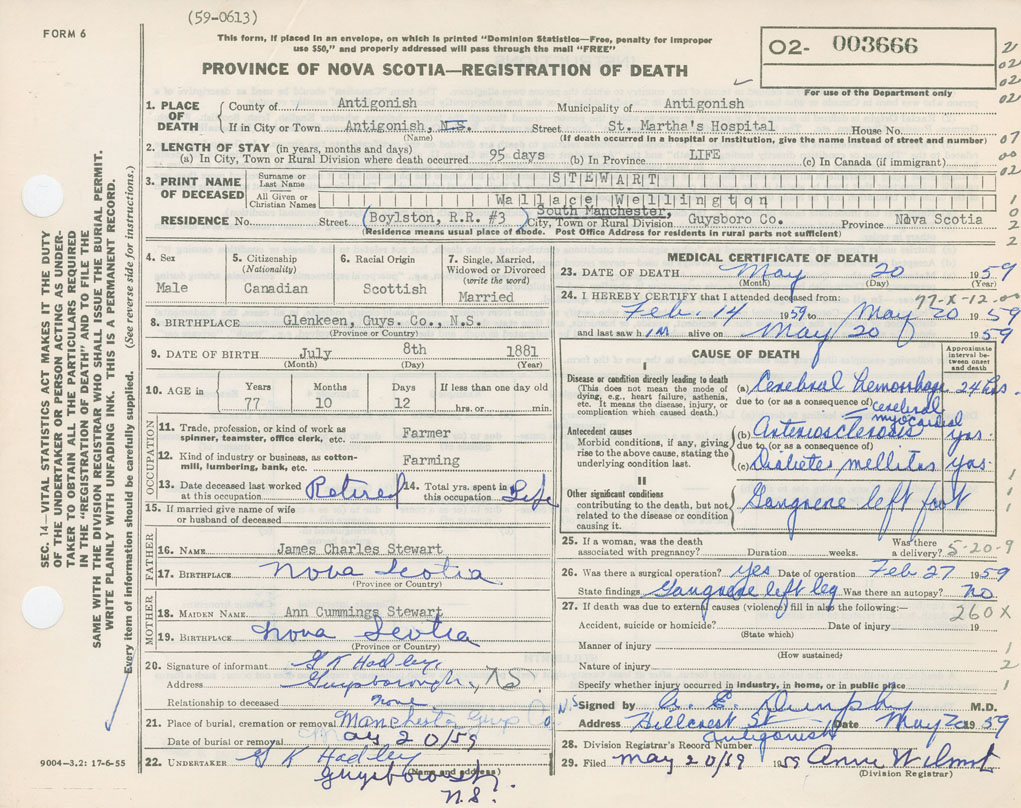 (59-0613)
FORM 6
This form, if placed in an envelope, on which is printed "Dominion Statistics—Free, penalty for improper
use $50," and properly addressed will pass through the mail "FREE"
PROVINCE OF NOVA SCOTIA—REGISTRATION OF DEATH
O2- 003666
For use of the Department only
1. PLACE OF DEATH County of Antigonish Municipality of Antigonish
If in City or Town Antigonish, N.S. Street St. Martha's Hospital House No.
(Name) (If death occurred in a hospital or institution, give the name instead of street and number)
2. LENGTH OF STAY (in years, months and days)
(a) In City, Town or Rural Division where death occurred 95 days (b) In Province LIFE (c) In Canada (if immigrant)
3. PRINT NAME OF DECEASED Surname or Last Name STEWART
All Given or Christian Names Wallace Wellington
RESIDENCE No. Street (Boylston, R.R. #3) South Manchester, City, Town or Rural Division Guysboro Co. Province Nova Scotia
(Residence means usual place of abode. Post Office Address for residents in rural parts not sufficient)
4. Sex
Male
5. Citizenship
(Nationality)
Canadian
6. Racial Origin
Scottish
7. Single, Married,
Widowed or Divorced
(write the word)
Married
8. BIRTHPLACE Glenkeen, Guys. Co., N.S.
(Province or Country)
9. DATE OF BIRTH July 8th 1881
(Month) (Day) (Year)
10. AGE in Years Months Days If less than one day old
77 10 12 hrs. or min.
OCCUPATION
11. Trade, profession, or kind of work as
spinner, teamster, office clerk, etc. Farmer
12. Kind of industry or business, as cotton-
mill, lumbering, bank, etc. Farming
13. Date deceased last worked
at this occupation Retired
14. Total yrs. spent in
this occupation Life
15. If married give name of wife
or husband of deceased
FATHER
16. NAME James Charles Stewart
17. BIRTHPLACE Nova Scotia
(Province or Country)
MOTHER
18. MAIDEN NAME Ann Cummings Stewart
19. BIRTHPLACE Nova Scotia
(Province or Country)
20. Signature of informant G K Hadley
Address Guysborough, N.S.
Relationship to deceased none
21. Place of burial, cremation or removal Manchester Guys Co N.S
Date of burial or removal May 20/59
22. UNDERTAKER G K Hadley
(Name and address)
Guysboro
N.S.
9004-3.2: 17-6-55
MEDICAL CERTIFICATE OF DEATH
23. DATE OF DEATH May 20 1959
(Month) (Day) (Year)
77-X-12.00
24. I HEREBY CERTIFY that I attended deceased from:
Feb. 14 1959 to May 20 1959
and last saw him alive on May 20 1959
CAUSE OF DEATH
Approximate
interval be-
tween onset
and death
I
Disease or condition directly leading to death
(This does not mean the mode of
dying, e.g., heart failure, asthenia,
etc. It means the disease, injury, or
complication which caused death.)
(a) Cerebral Hemorrhage 24 hrs.
due to (or as a consequence of)
cerebral
myocardial
Antecedent causes
Morbid conditions, if any, giving
rise to the above cause, stating the
underlying condition last.
(b) Arteriosclerosis yrs.
due to (or as a consequence of)
(c) Diabetes mellitus yrs.
II
Other significant conditions
contributing to the death, but not
related to the disease or condition
causing it.
Gangrene left foot
25. If a woman, was the death
associated with pregnancy? Duration weeks. Was there
a delivery?
5-20-9
26. Was there a surgical operation? yes Date of operation Feb 27 1959
State findings Gangrene left leg Was there an autopsy? no
27. If death was due to external causes (violence) fill in also the following:—
260X
Accident, suicide or homicide? Date of injury 19
(State which)
Manner of injury
(How sustained)
Nature of injury
Specify whether injury occurred in industry, in home, or in public place
Signed by C. E. Dumphy M.D.
Address Hillcrest St Date May 20 1959
Antigonish
28. Division Registrar's Record Number
29. Filed May 20/59 1959 Anne Wilmot
(Division Registrar)
SEC. 14—VITAL STATISTICS ACT MAKES IT THE DUTY
OF THE UNDERTAKER OR PERSON ACTING AS UNDER-
TAKER TO OBTAIN ALL THE PARTICULARS REQUIRED
IN THE "REGISTRATION OF DEATH" AND TO FILE THE
SAME WITH THE DIVISION REGISTRAR WHO SHALL ISSUE THE BURIAL PERMIT.
WRITE PLAINLY WITH UNFADING INK. THIS IS A PERMANENT RECORD.
Every item of information should be carefully supplied. (See reverse side for instructions.)